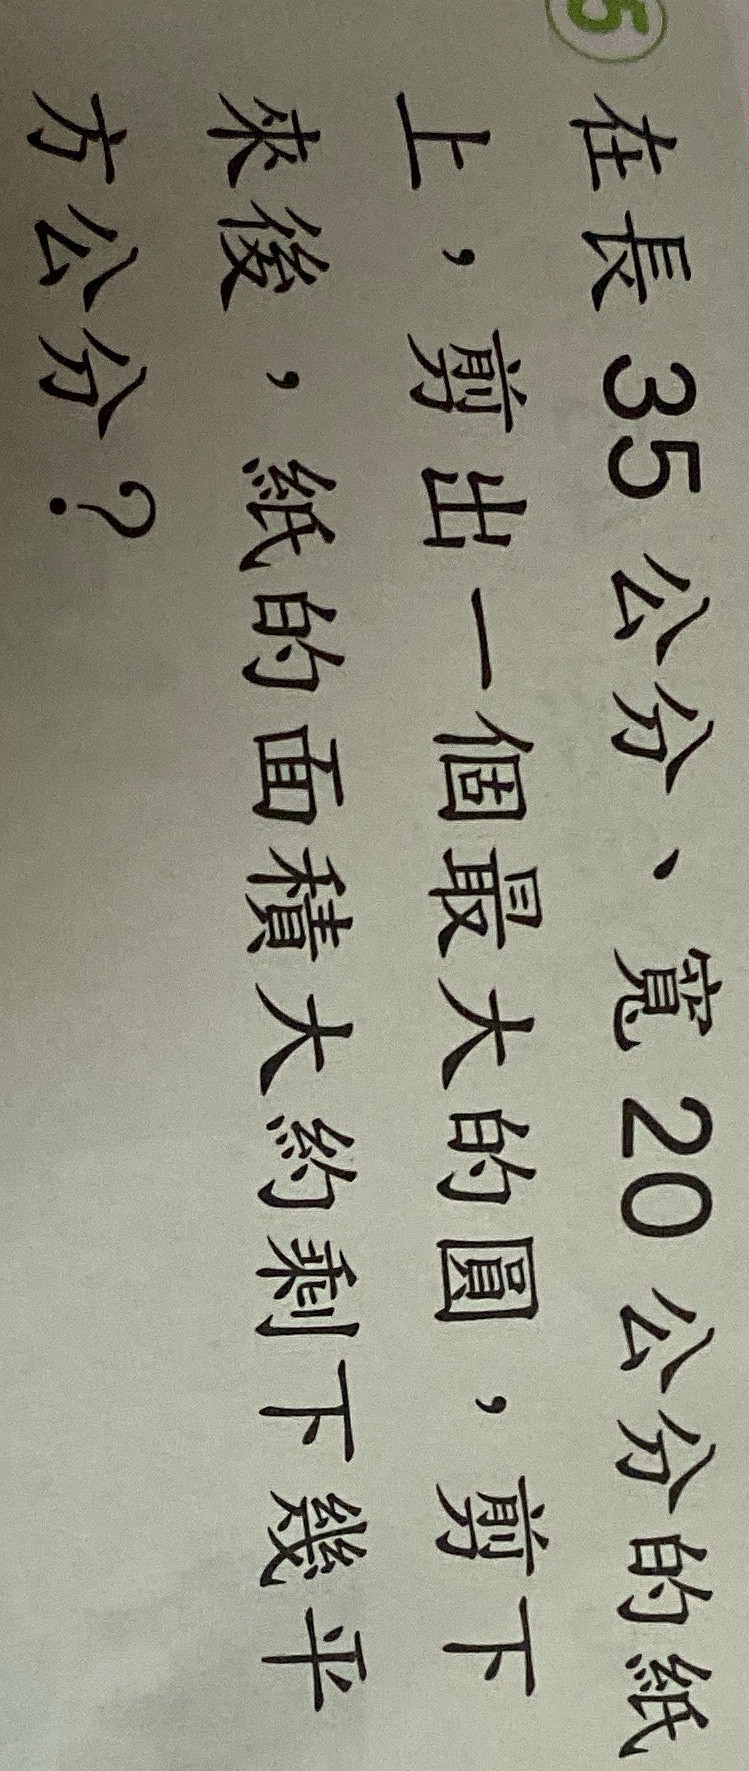 5
在長 35 公分、寬 20 公分的紙
上，剪出一個最大的圓，剪下
來後，紙的面積大約剩下幾平
方公分？